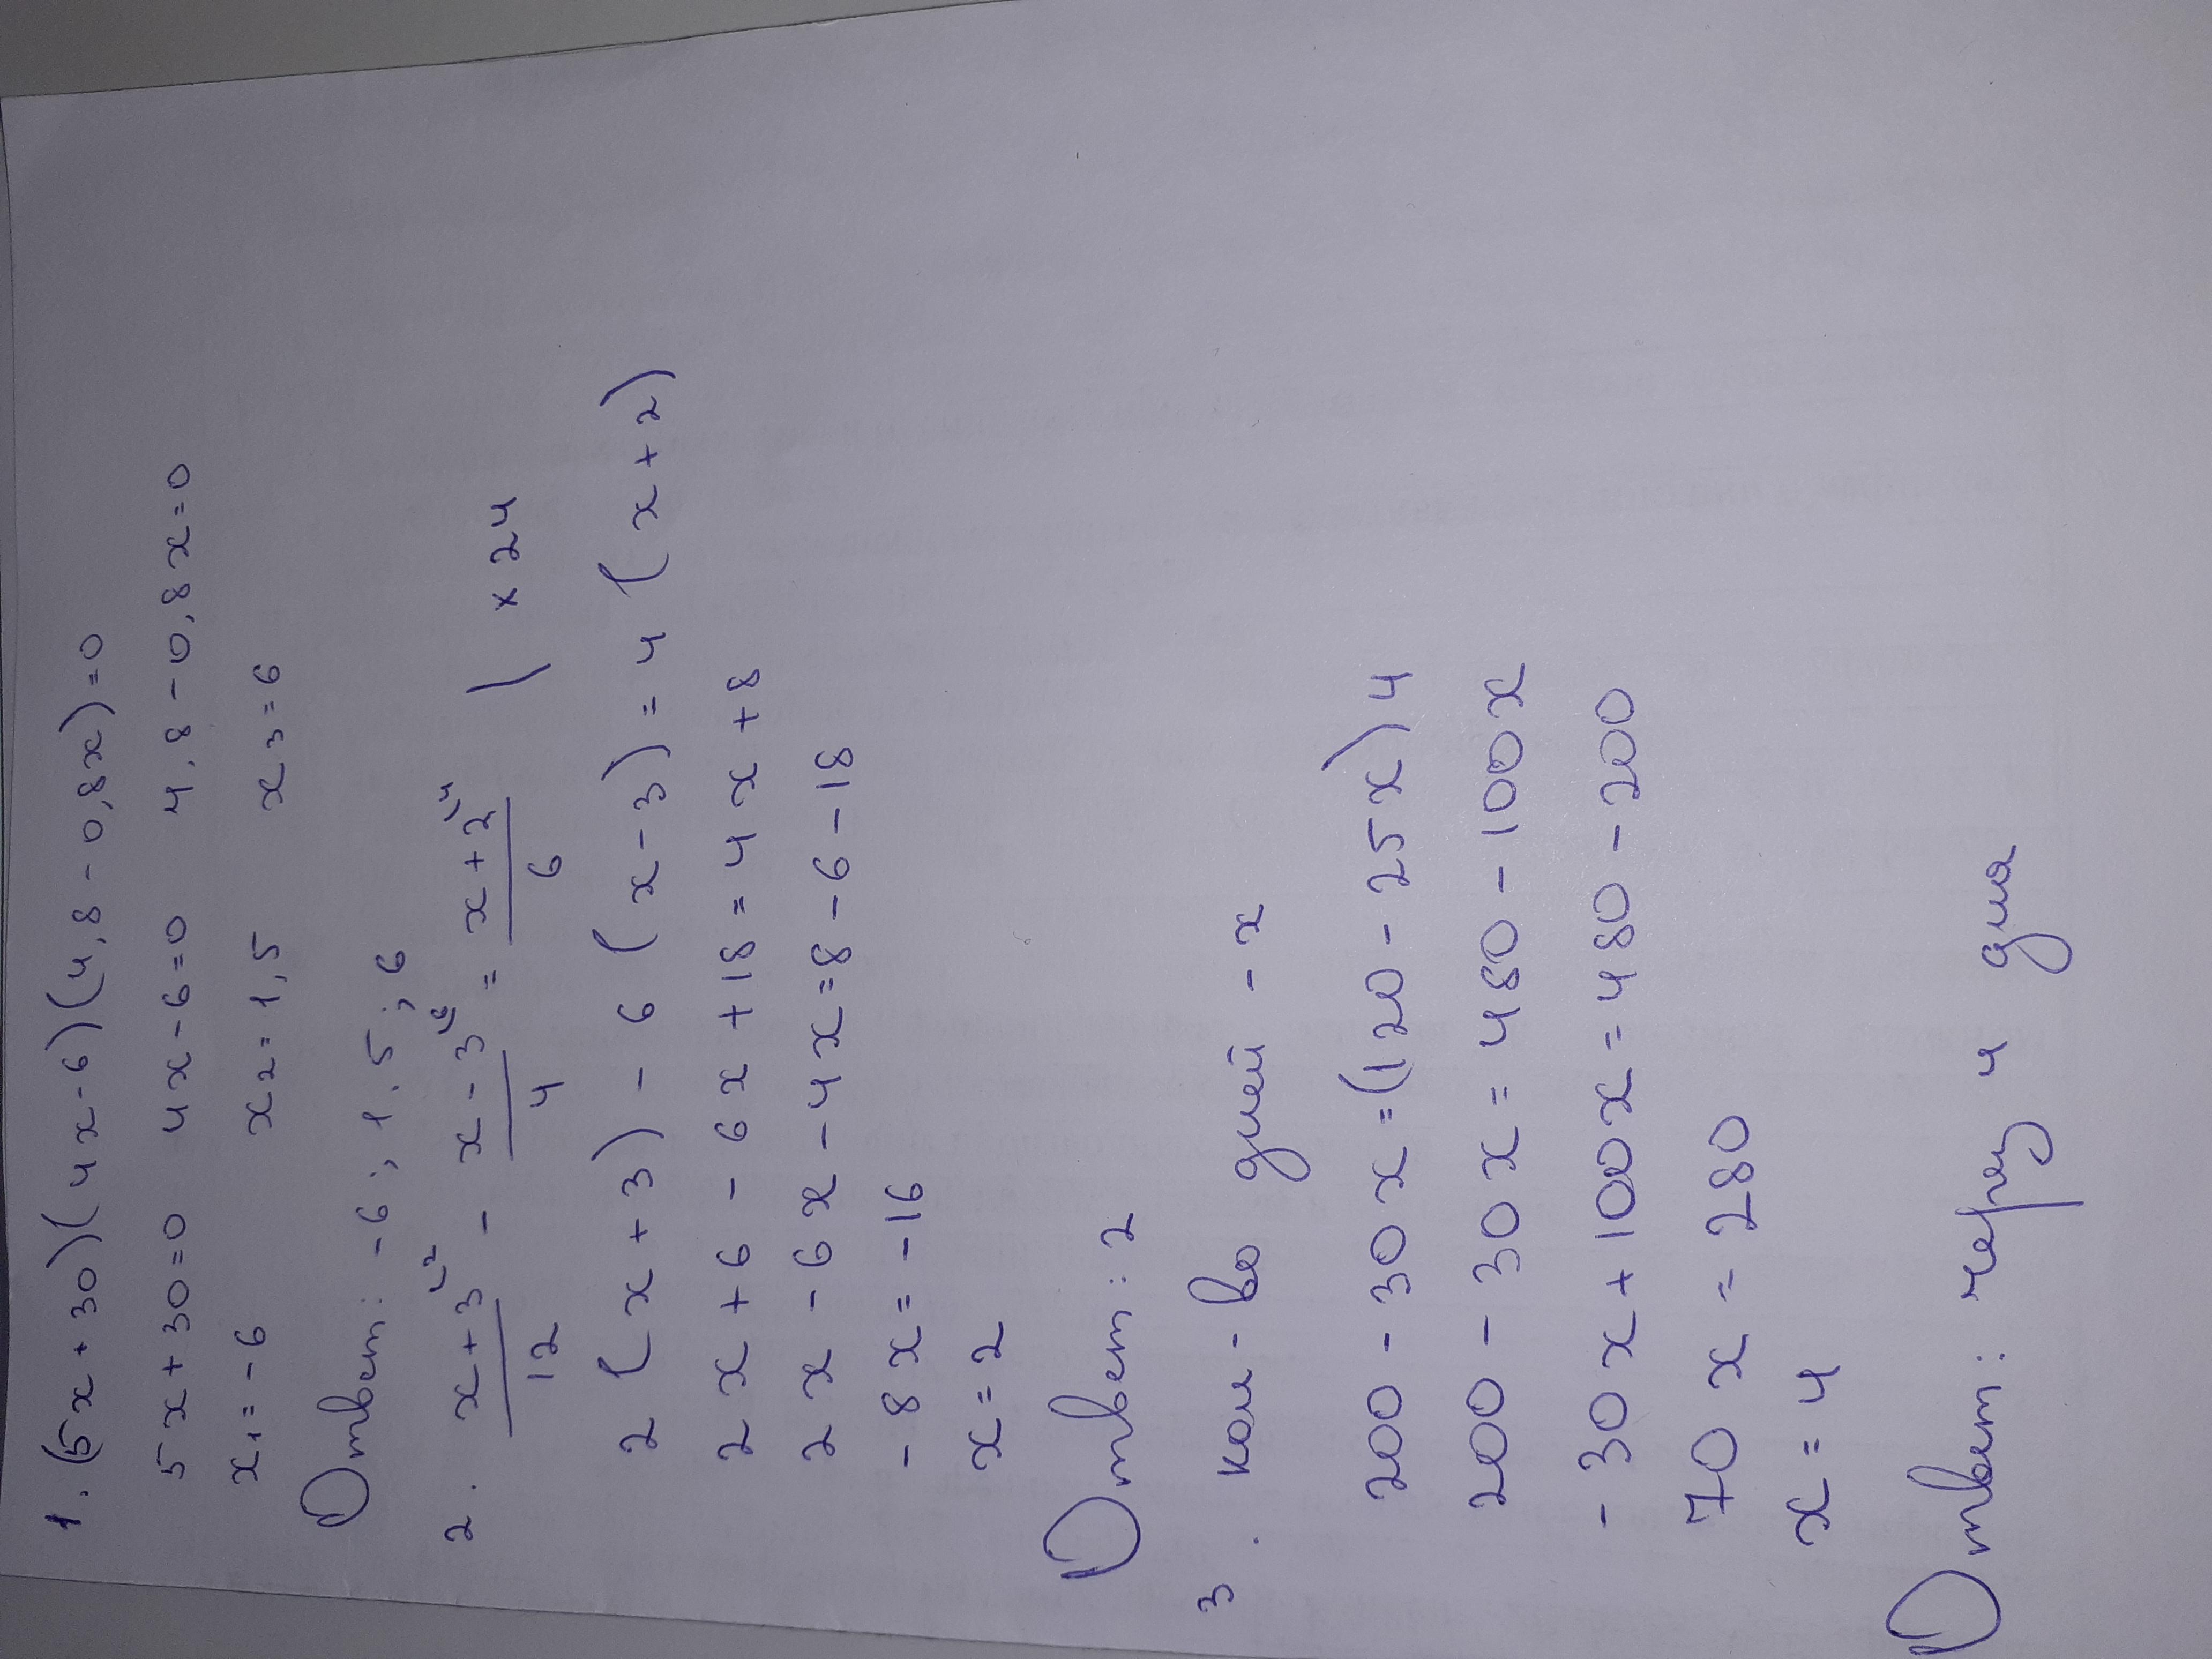 1. (5x+30)(4x-6)(4,8-0,8x)=0
5x+30=0 4x-6=0 4,8-0,8x=0
x₁=-6 x₂=1,5 x₃=6
Ответ: -6; 1,5; 6
2. x+3\2/12 - x-3\6/4 = x+2\4/6 | ×24
2(x+3)-6(x-3)=4(x+2)
2x+6-6x+18=4x+8
2x-6x-4x=8-6-18
-8x=-16
x=2
Ответ: 2
3. кол-во дней - x
200-30x=(120-25x)4
200-30x=480-100x
-30x+100x=480-200
70x=280
x=4
Ответ: через 4 дня